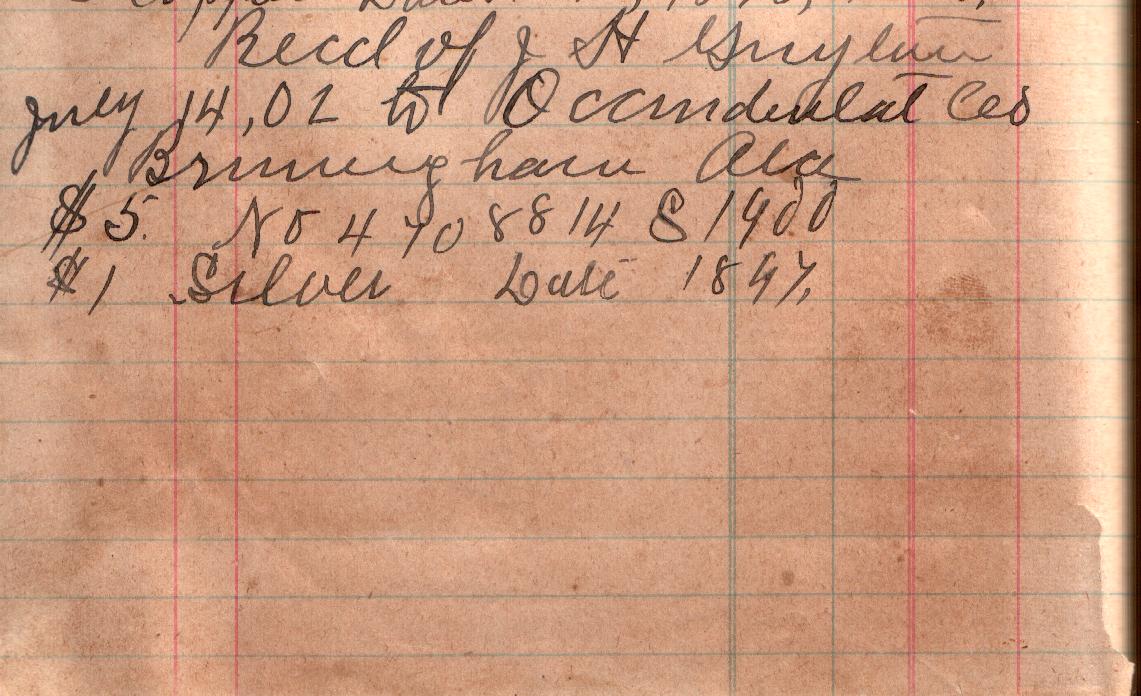 Copper Date
Recd of J H Guyton
July 14, 02 to Occindental Ces
Birmingham Ala
$5. No 4708814 S 1900
$1 Silver Date 1897.